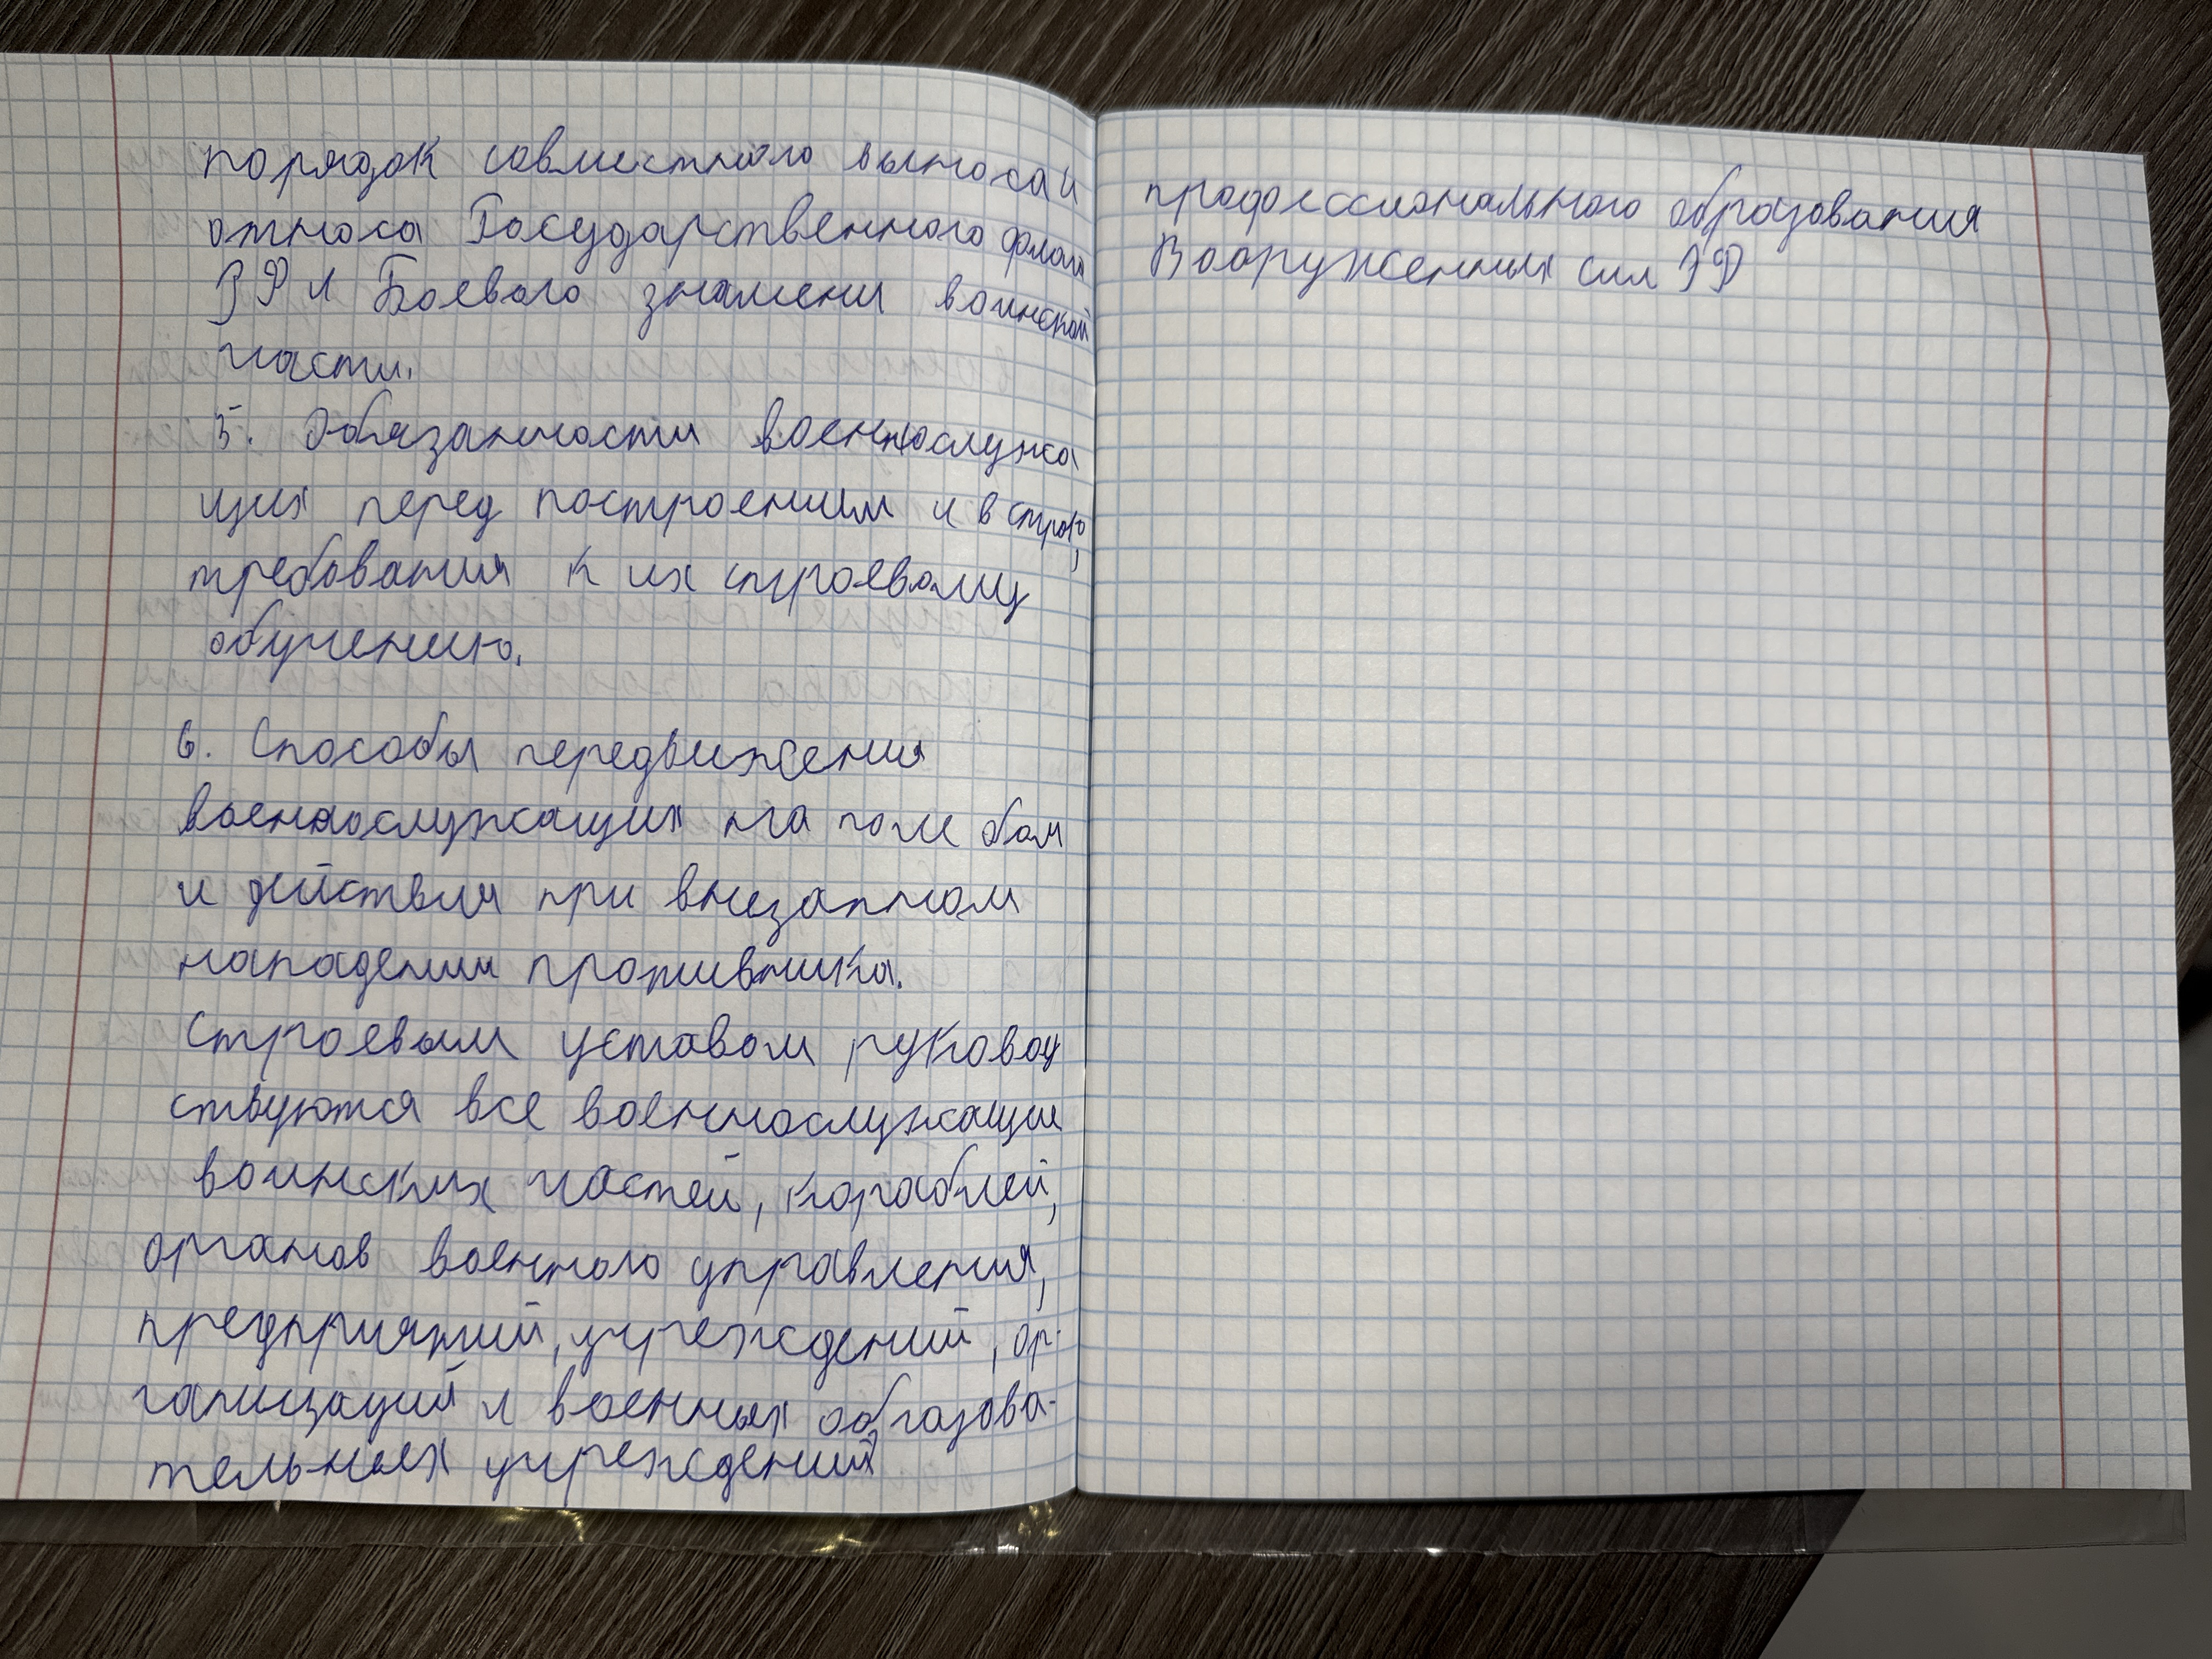 порядок совместного выноса и
относа Государственного флага
РФ и Боевого знамени воинской
части.
5. Обязанности военнослужа
щих перед построением и в строю,
требования к их строевому
обучению.
6. Способы передвижения
военнослужащих на поле боя
и действия при внезапном
нападении противника.
Строевым уставом руковод
ствуются все военнослужащие
воинских частей, кораблей,
органов военного управления,
предприятий, учреждений, ор-
ганизаций и военных образова-
тельных учреждений
профессионального образования
Вооруженных сил РФ